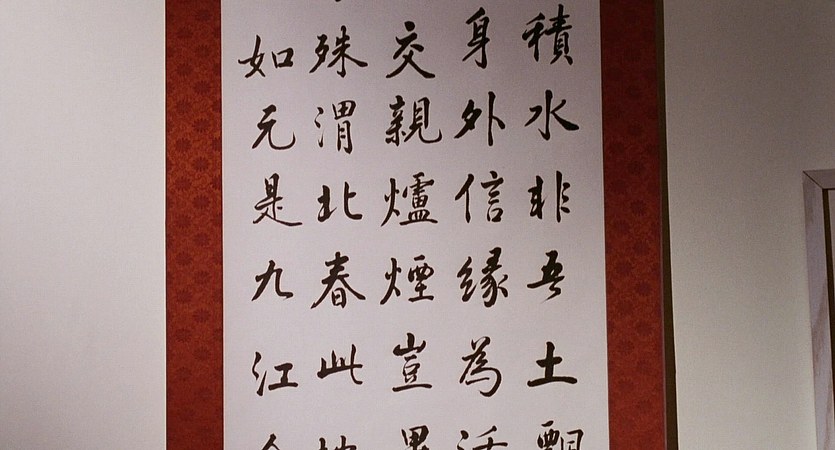 積水非吾土
身外信緣為
交親爐煙豈
殊渭北春此
如元是九江